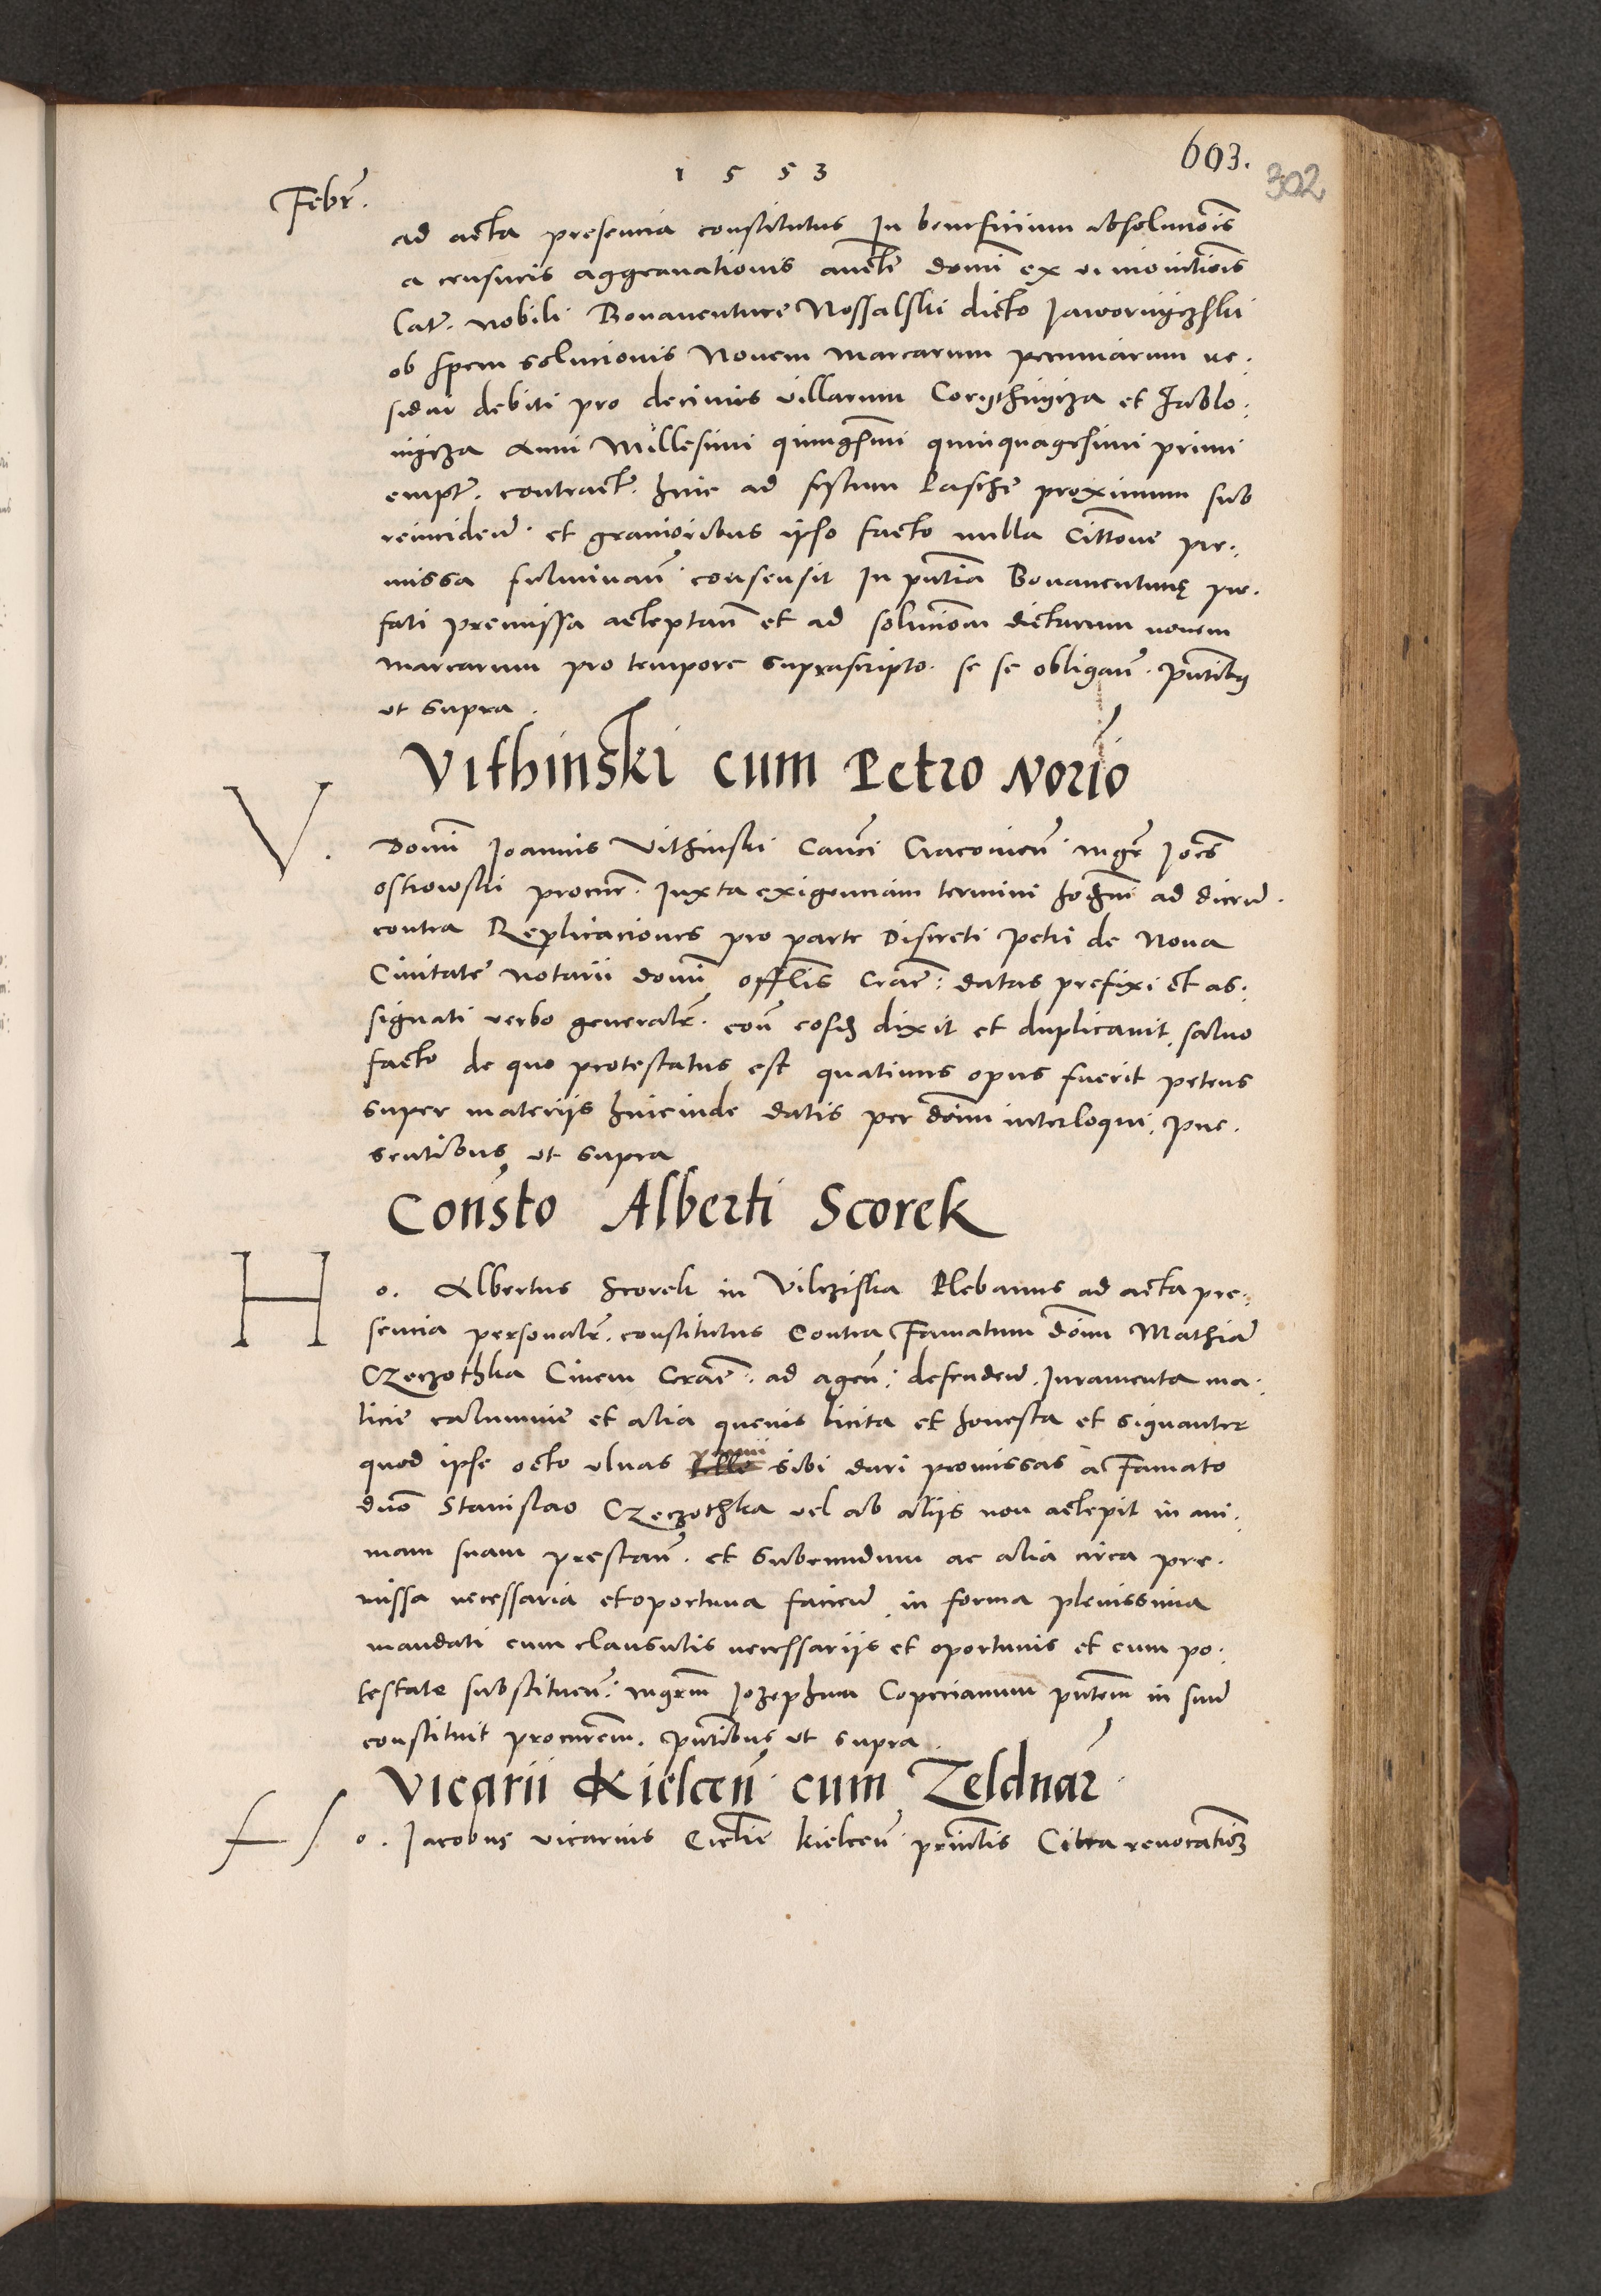 1553
603.
302
Febr̃.
ad acta presencia constitutus In beneficium absolucõis
a censuris aggravationis auctẽ domĩ ex vi moniciõis
lat̃. nobili Bonaventure Nossalski dicto Jaworniczski
ob spem solucionis Novem marcarum pecuniarum re:
sidui debiti pro decimis villarum Corythnycza et Jablo:
nycza Anni Millesimi quingẽsmi quinquagesimi primi
empt̃. contract̃. hinc ad festum Paschẽ proximum sub
reincideñ. et gravioribus ipso facto nulla Cittõne pre:
missa fulminañ. consensit In pñtia Bonaventurę pre:
fati premissa acceptañ et ad soluciõm dictarum novem
marcarum pro tempore suprascripto. se se obligañ. pñtibus
ut supra.
Vithinski cum Petro Norio
V.
Domĩ Joannis Vithinski Canci Cracovieñ. mgr̃ Joẽs
ostrowski procur̃. Juxta exigenciam termini hodñi ad diceñ.
contra Replicaciones pro parte Discreti Petri de Nova
Civitate notarii domĩ offlis Craẽ: datas prefixi et as:
signati verbo generalr̃. coñ easdẽ dixit et duplicavit, salvo
facto de quo protestatus est quatinus opus fuerit petens
super materiis hincinde datis per dõm interloqui, Pre:
sentibus ut supra
Consto Alberti Scorek
H
o. Albertus Scorek in Vilcziska Plebanus ad acta pre:
sencia personalr̃. constitutus Contra Famatum dõm Mathiã
Czeczothka Civem Craẽ. ad ageñ: defendeñ. Juramenta ma:
licie calumnie et alia quevis licita et honesta et signanter
quod ipse octo ulnas panni sibi dari promissas à Famato
dño Stanislao Czeczothka vel ab aliis non accepit in ani:
mam suam prestañ. et subeundum ac alia circa pre:
missa necessaria et oportuna facieñ, in forma plenissima
mandati cum clausulis necessariis et oportunis et cum po:
testate substitueñ: mgrm̃ Jozephum Copecianum pñtem in suũ
constituit procurẽm. pñtibus ut supra.
Vicarii Kielceñ cum Zeldnar̃
H
o. Jacobus vicarius Ecclie kielceñ. principlis Citra revocatiõẽ